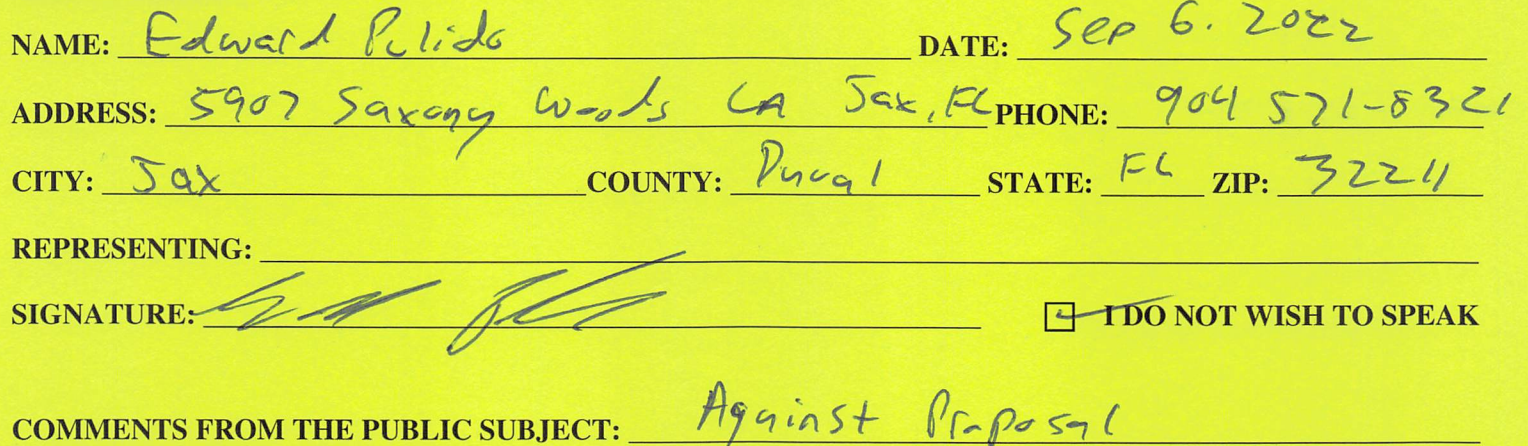 NAME: Edward Pulido DATE: Sep 6. 2022
ADDRESS: 5907 Saxony Woods LA Jax, FL PHONE: 904 571-8321
CITY: Jax COUNTY: Duval STATE: FL ZIP: 32211
REPRESENTING:
SIGNATURE: I DO NOT WISH TO SPEAK
COMMENTS FROM THE PUBLIC SUBJECT: Against Proposal